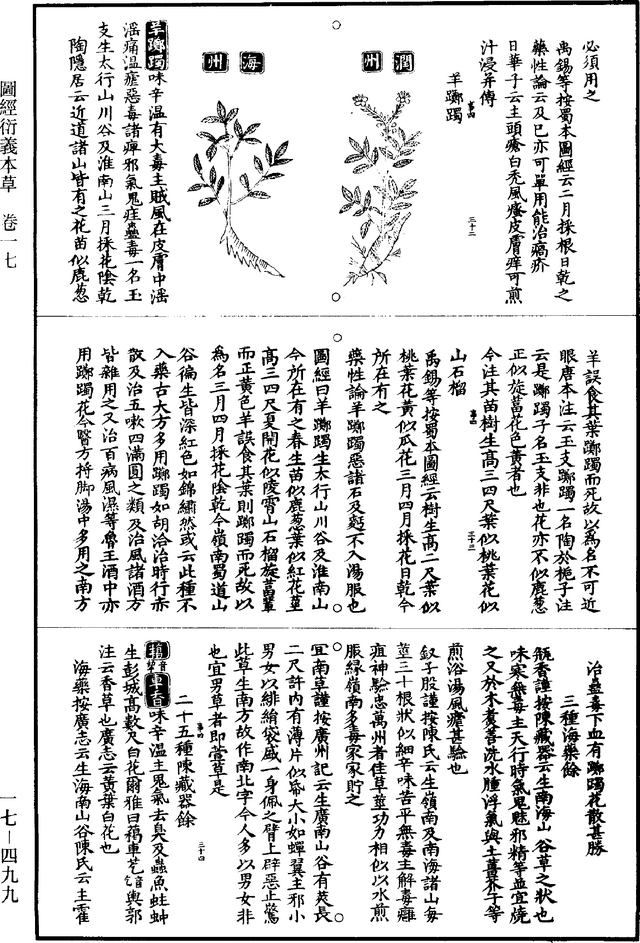 圖經衍義本草 卷一七
一七－四九九
必須用之
禹錫等按蜀本圖經云二月採根日乾之
藥性論云及巳亦可單用能治瘑疥
日華子云主頭瘡白禿風瘙皮膚痒可煎
汁浸并傅
羊躑躅
三十二
潤州
海州
羊躑躅味辛温有大毒主賊風在皮膚中淫
淫痛温瘧惡毒諸痺邪氣鬼疰蠱毒一名玉
支生太行山川谷及淮南山三月採花陰乾
陶隱居云近道諸山皆有之花苗似鹿葱
羊誤食其葉躑躅而死故以爲名不可近
眼唐本注云玉支躑躅一名陶於梔子注
云是躑躅子名玉支非也花亦不似鹿葱
正似旋葍花色黄者也
今注其苗樹生高三四尺葉似桃葉花似
山石榴
三十三
禹錫等按蜀本圖經云樹生高二尺葉似
桃葉花黄似瓜花三月四月採花日乾今
所在有之
藥性論羊躑躅惡諸石及麪不入湯服也
圖經曰羊躑躅生太行山川谷及淮南山
今所在有之春生苗似鹿葱葉似紅花莖
高三四尺夏開花似陵霄山石榴旋葍輩
而正黄色羊誤食其葉則躑躅而死故以
爲名三月四月採花陰乾今嶺南蜀道山
谷徧生皆深紅色如錦繡然或云此種不
入藥古大方多用躑躅如胡洽治時行赤
散及治五嗽四滿圓之類及治風諸酒方
皆雜用之又治百病風濕等魯王酒中亦
用躑躅花今醫方捋脚湯中多用之南方
治蠱毒下血有躑躅花散甚勝
三種海藥餘
瓶香謹按陳藏器云生南海山谷草之狀也
味寒無毒主天行時氣鬼魅邪精等並宜燒
之又於水煮善洗水腫浮氣與土薑芥子等
煎浴湯風瘧甚驗也
釵子股謹按陳氏云生嶺南及南海諸山每
莖三十根狀似細辛味苦平無毒主解毒癰
疽神驗忠萬州者佳草莖功力相似以水煎
服緑嶺南多毒家家貯之
宜南草謹按廣州記云生廣南山谷有莢長
二尺許内有薄片似紙大小如蟬翼主邪小
男女以緋絹袋盛一身佩之臂上辟惡止驚
此草生南方故作南北字今人多以男女非
也宜男草者即萱草是
三十四
二十五種陳藏器餘
藒車香味辛温主鬼氣去臭及蟲魚蛀蚛
生彭城高數尺白花爾雅曰藒車芞輿郭
注云香草也廣志云黄葉白花也
海藥按廣志云生海南山谷陳氏云主霍